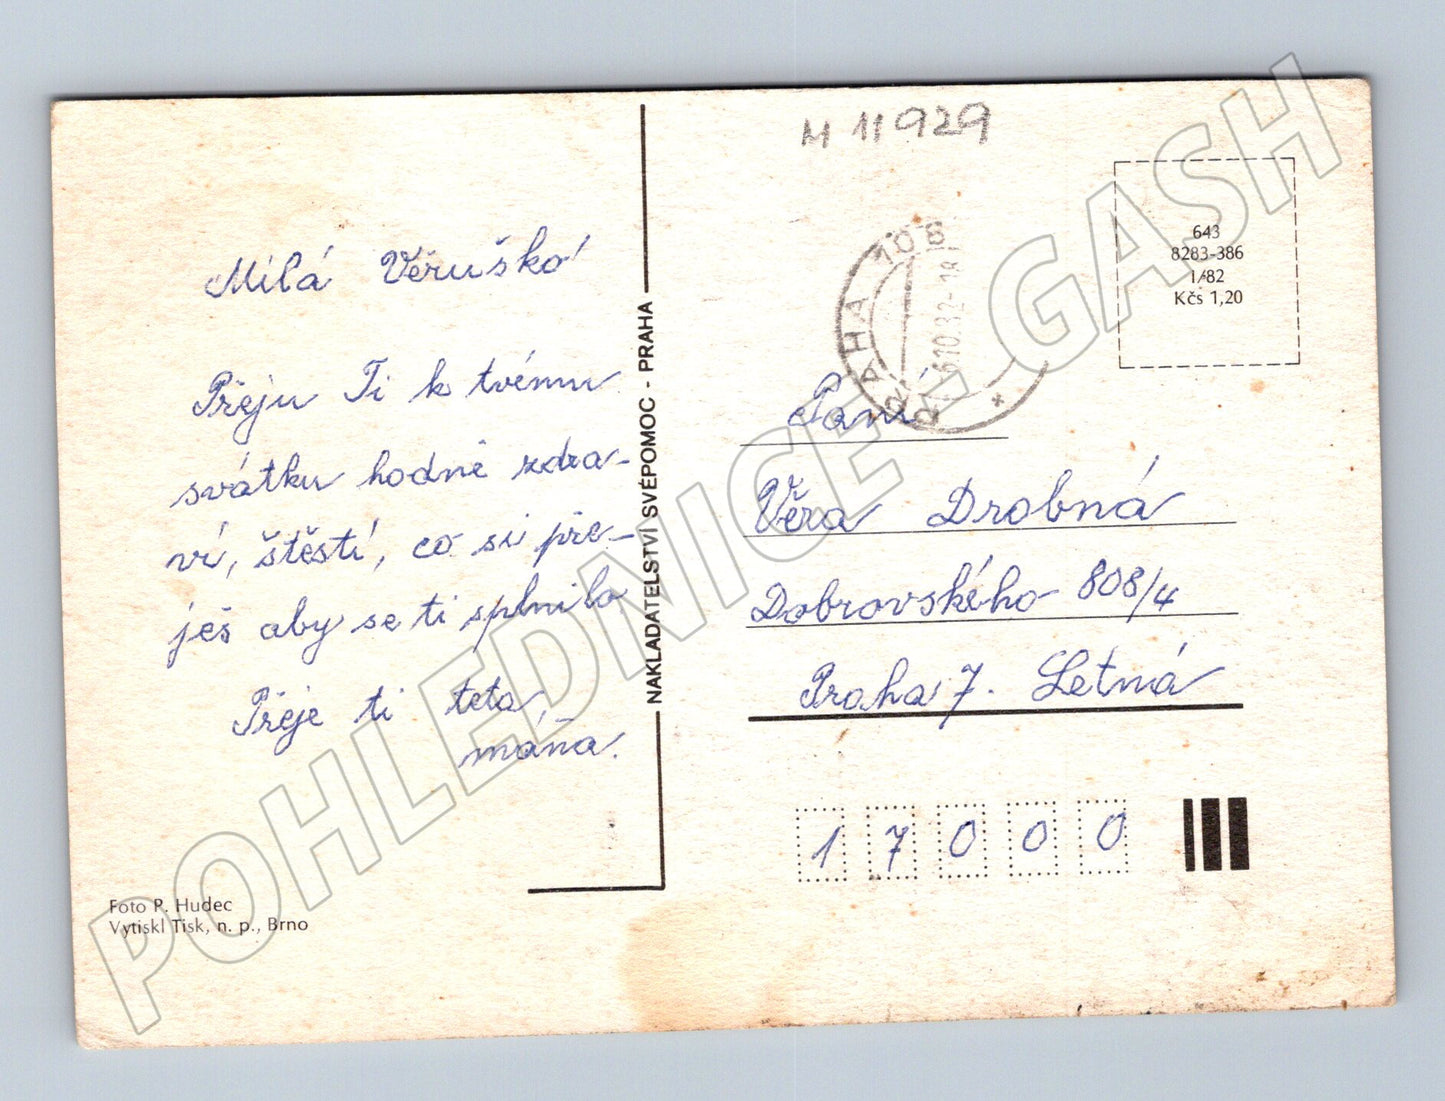 M 11929
643
8283-386
1/82
Kčs 1,20
PRAHA 108
6.10.82-18
Milá Věruško
Přeju Ti k tvému
svátku hodně zdra-
ví, štěstí, co si pře-
ješ aby se ti splnilo
Přeje ti teta
mána.
NAKLADATELSTVÍ SVÉPOMOC - PRAHA
Paní
Věra Drobná
Dobrovského 808/4
Praha 7. Letná
17000
Foto P. Hudec
Vytiskl Tisk, n. p., Brno
POHLEDNICE - GASH